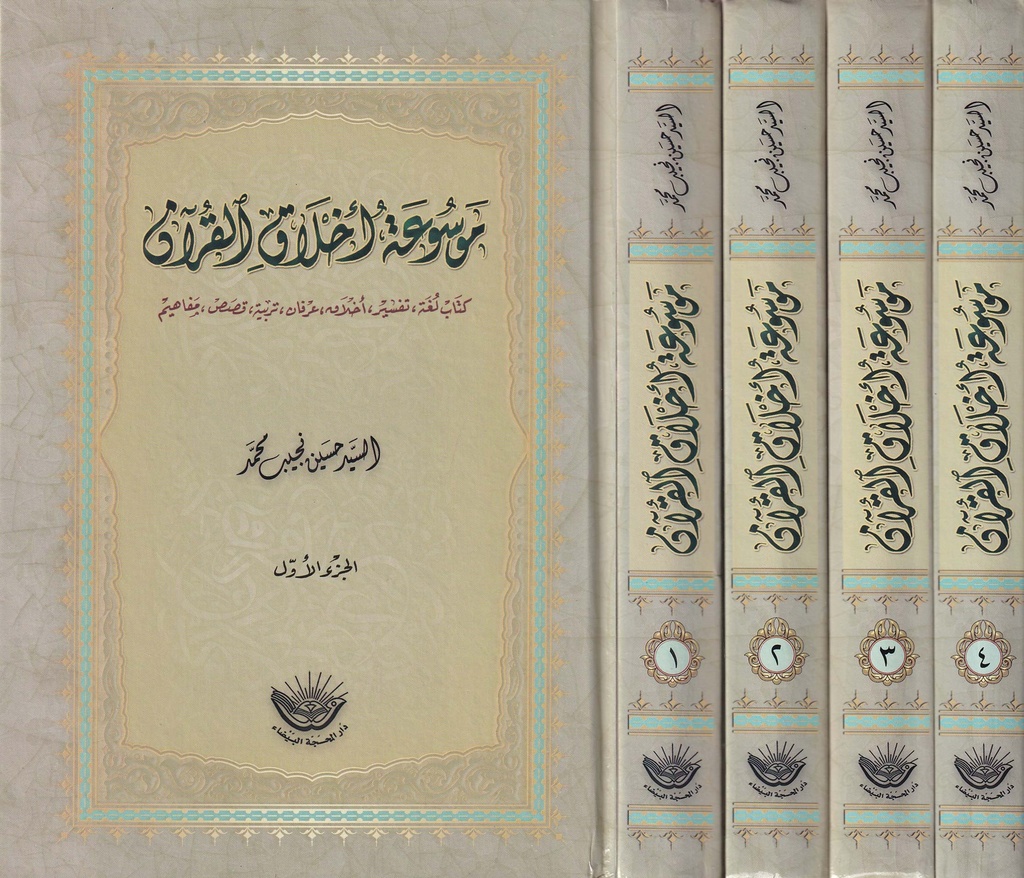 مَوسُوعَة أَخْلَاقِ القُرآن
كتَابُ لُغَة، تفسير، أخلاق، عرفان، تربية، قصص، مفاهيم
السَّيِّد حسَين نجيب محمَّد
الجزء الأوّل
دار المحجّة البيضاء
السيّد حسين نجيب محمّد
مَوسُوعَة أَخْلَاقِ القُرآن
١
دار المحجّة البيضاء
السيّد حسين نجيب محمّد
مَوسُوعَة أَخْلَاقِ القُرآن
٢
دار المحجّة البيضاء
السيّد حسين نجيب محمّد
مَوسُوعَة أَخْلَاقِ القُرآن
٣
دار المحجّة البيضاء
السيّد حسين نجيب محمّد
مَوسُوعَة أَخْلَاقِ القُرآن
٤
دار المحجّة البيضاء